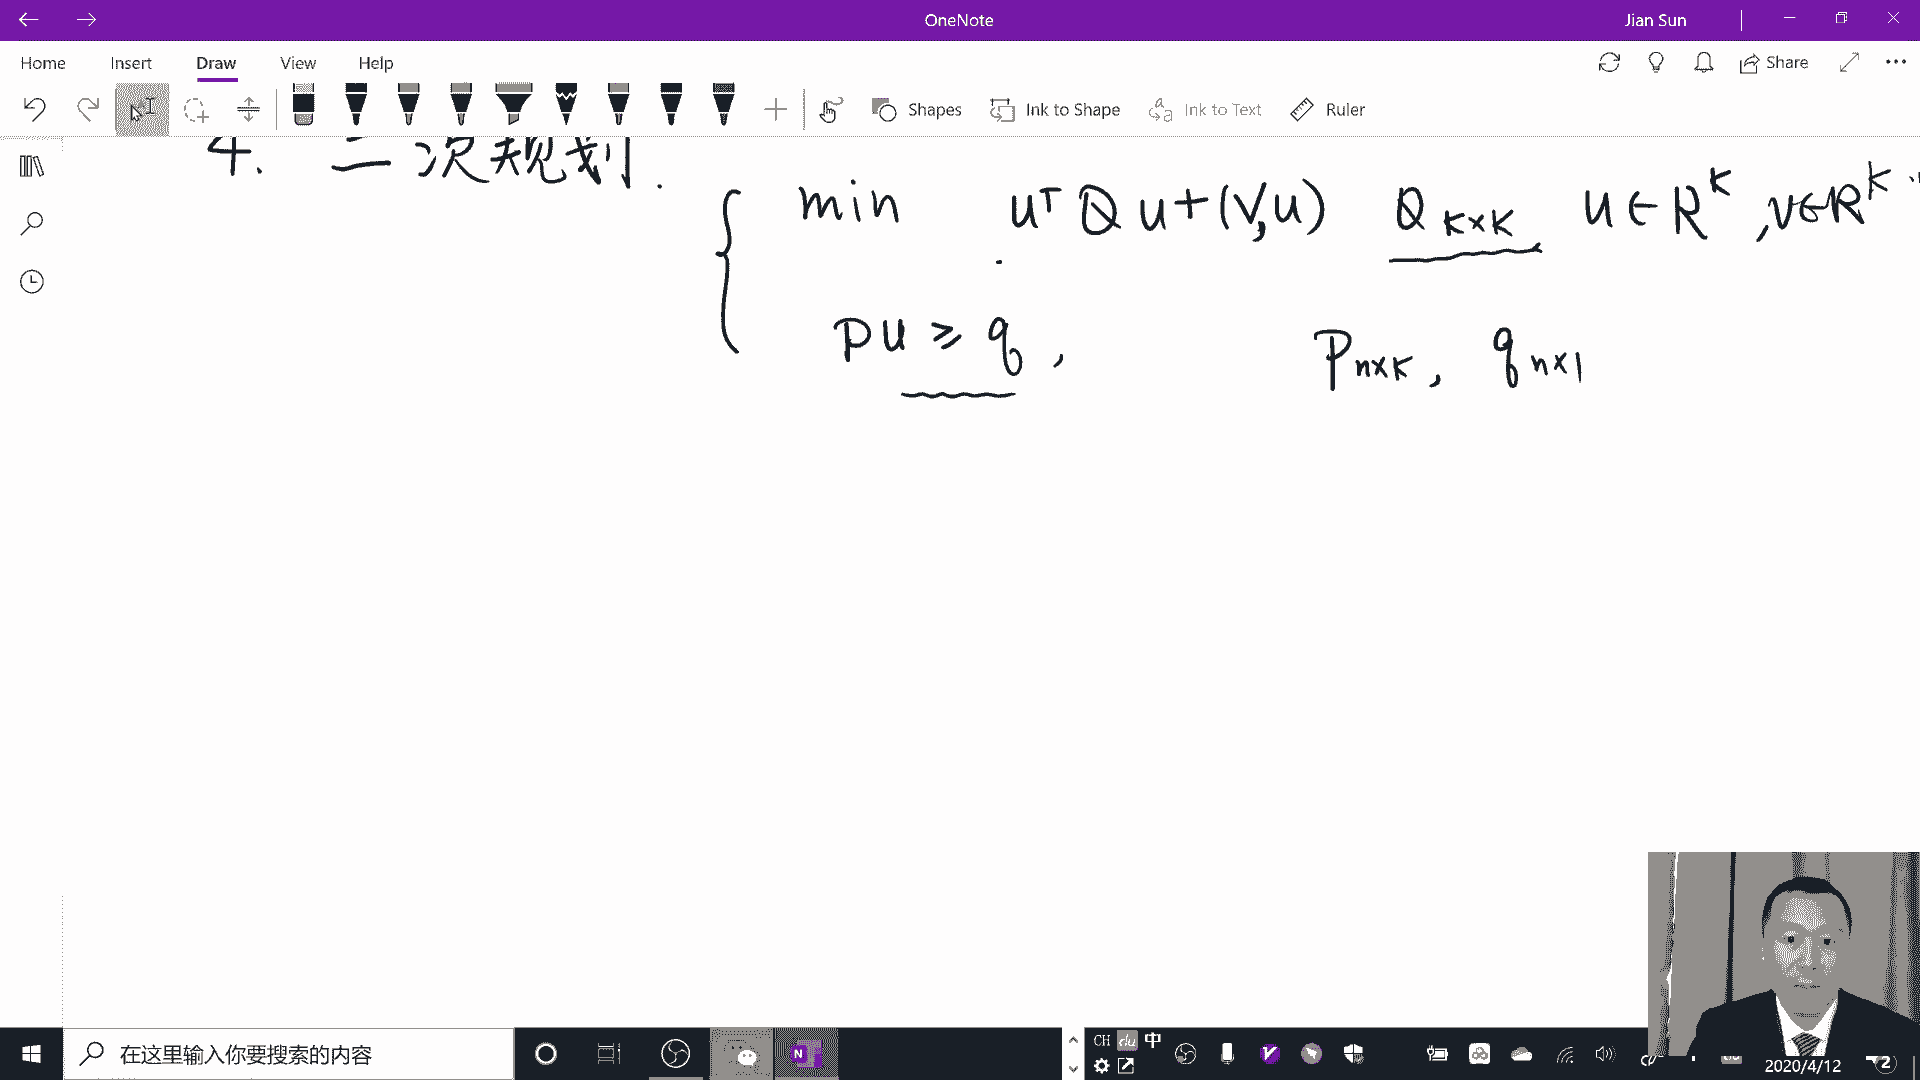 OneNote
Jian Sun
Home Insert Draw View Help
Share
Shapes Ink to Shape Ink to Text Ruler
4. 二次规划.
min uᵀQu+(v,u) Q K×K u∈R^K, v∈R^K
Pu ≥ q, P n×K, q n×1
在这里输入你要搜索的内容
CH du 中
N
2020/4/12
2